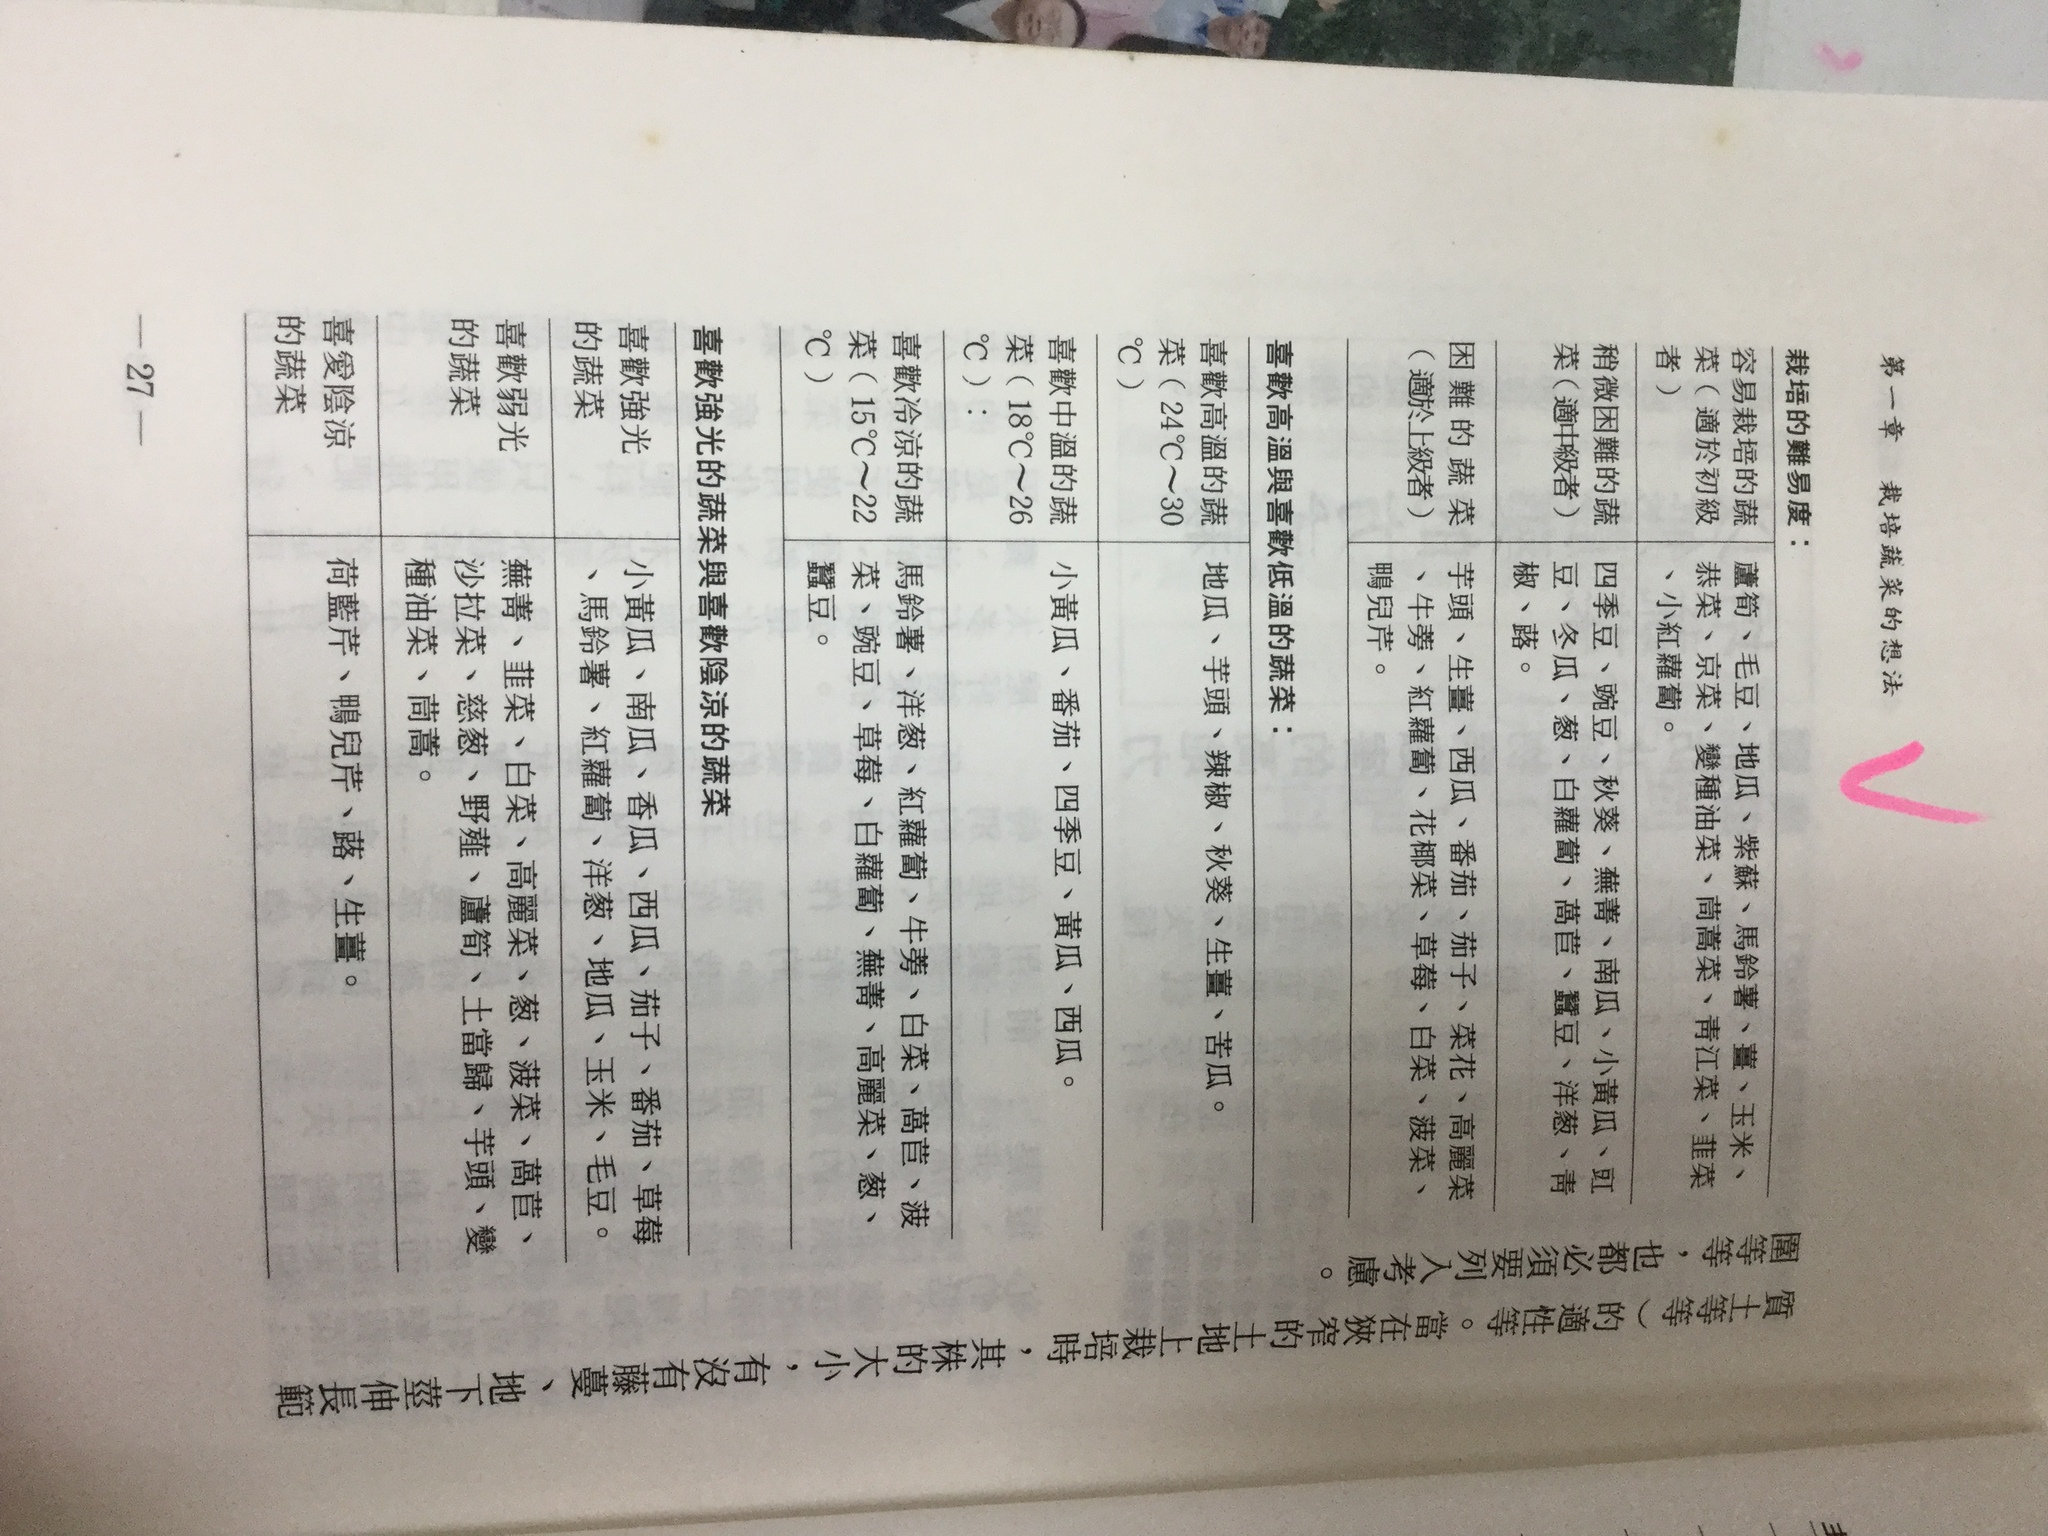 第一章　栽培蔬菜的想法
質土等等）的適性等。當在狹窄的土地上栽培時，其株的大小，有沒有藤蔓、地下莖伸長範
圍等等，也都必須要列入考慮。
栽培的難易度：
容易栽培的蔬
菜（適於初級
者）
蘆筍、毛豆、地瓜、紫蘇、馬鈴薯、薑、玉米、
恭菜、京菜、變種油菜、茼蒿菜、青江菜、韭菜
、小紅蘿蔔。
稍微困難的蔬
菜（適中級者）
四季豆、豌豆、秋葵、蕪菁、南瓜、小黃瓜、豇
豆、冬瓜、葱、白蘿蔔、萵苣、蠶豆、洋葱、青
椒、蕗。
困難的蔬菜
（適於上級者）
芋頭、生薑、西瓜、番茄、茄子、菜花、高麗菜
、牛蒡、紅蘿蔔、花椰菜、草莓、白菜、菠菜、
鴨兒芹。
喜歡高溫與喜歡低溫的蔬菜：
喜歡高溫的蔬
菜（24℃～30
℃）
地瓜、芋頭、辣椒、秋葵、生薑、苦瓜。
喜歡中溫的蔬
菜（18℃～26
℃）：
小黃瓜、番茄、四季豆、黃瓜、西瓜。
喜歡冷涼的蔬
菜（15℃～22
℃）
馬鈴薯、洋葱、紅蘿蔔、牛蒡、白菜、萵苣、菠
菜、豌豆、草莓、白蘿蔔、蕪菁、高麗菜、葱、
蠶豆。
喜歡強光的蔬菜與喜歡陰涼的蔬菜
喜歡強光
的蔬菜
小黃瓜、南瓜、香瓜、西瓜、茄子、番茄、草莓
、馬鈴薯、紅蘿蔔、洋葱、地瓜、玉米、毛豆。
喜歡弱光
的蔬菜
蕪菁、韭菜、白菜、高麗菜、葱、菠菜、萵苣、
沙拉菜、慈葱、野薤、蘆筍、土當歸、芋頭、變
種油菜、茼蒿。
喜愛陰涼
的蔬菜
荷藍芹、鴨兒芹、蕗、生薑。
—27—